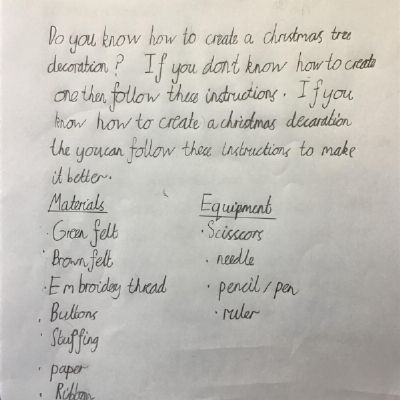 Do you know how to create a christmas tree
decoration? If you dont know how to create
one then follow these instructions. If you
know how to create a christmas decaration
the you can follow these instructions to make
it better.
Materials Equipment
· Green felt · Scisscors
· Brown felt · needle
· Embroidey thread · pencil / pen
· Buttons · ruler
· Stuffing
· paper
· Ribbon